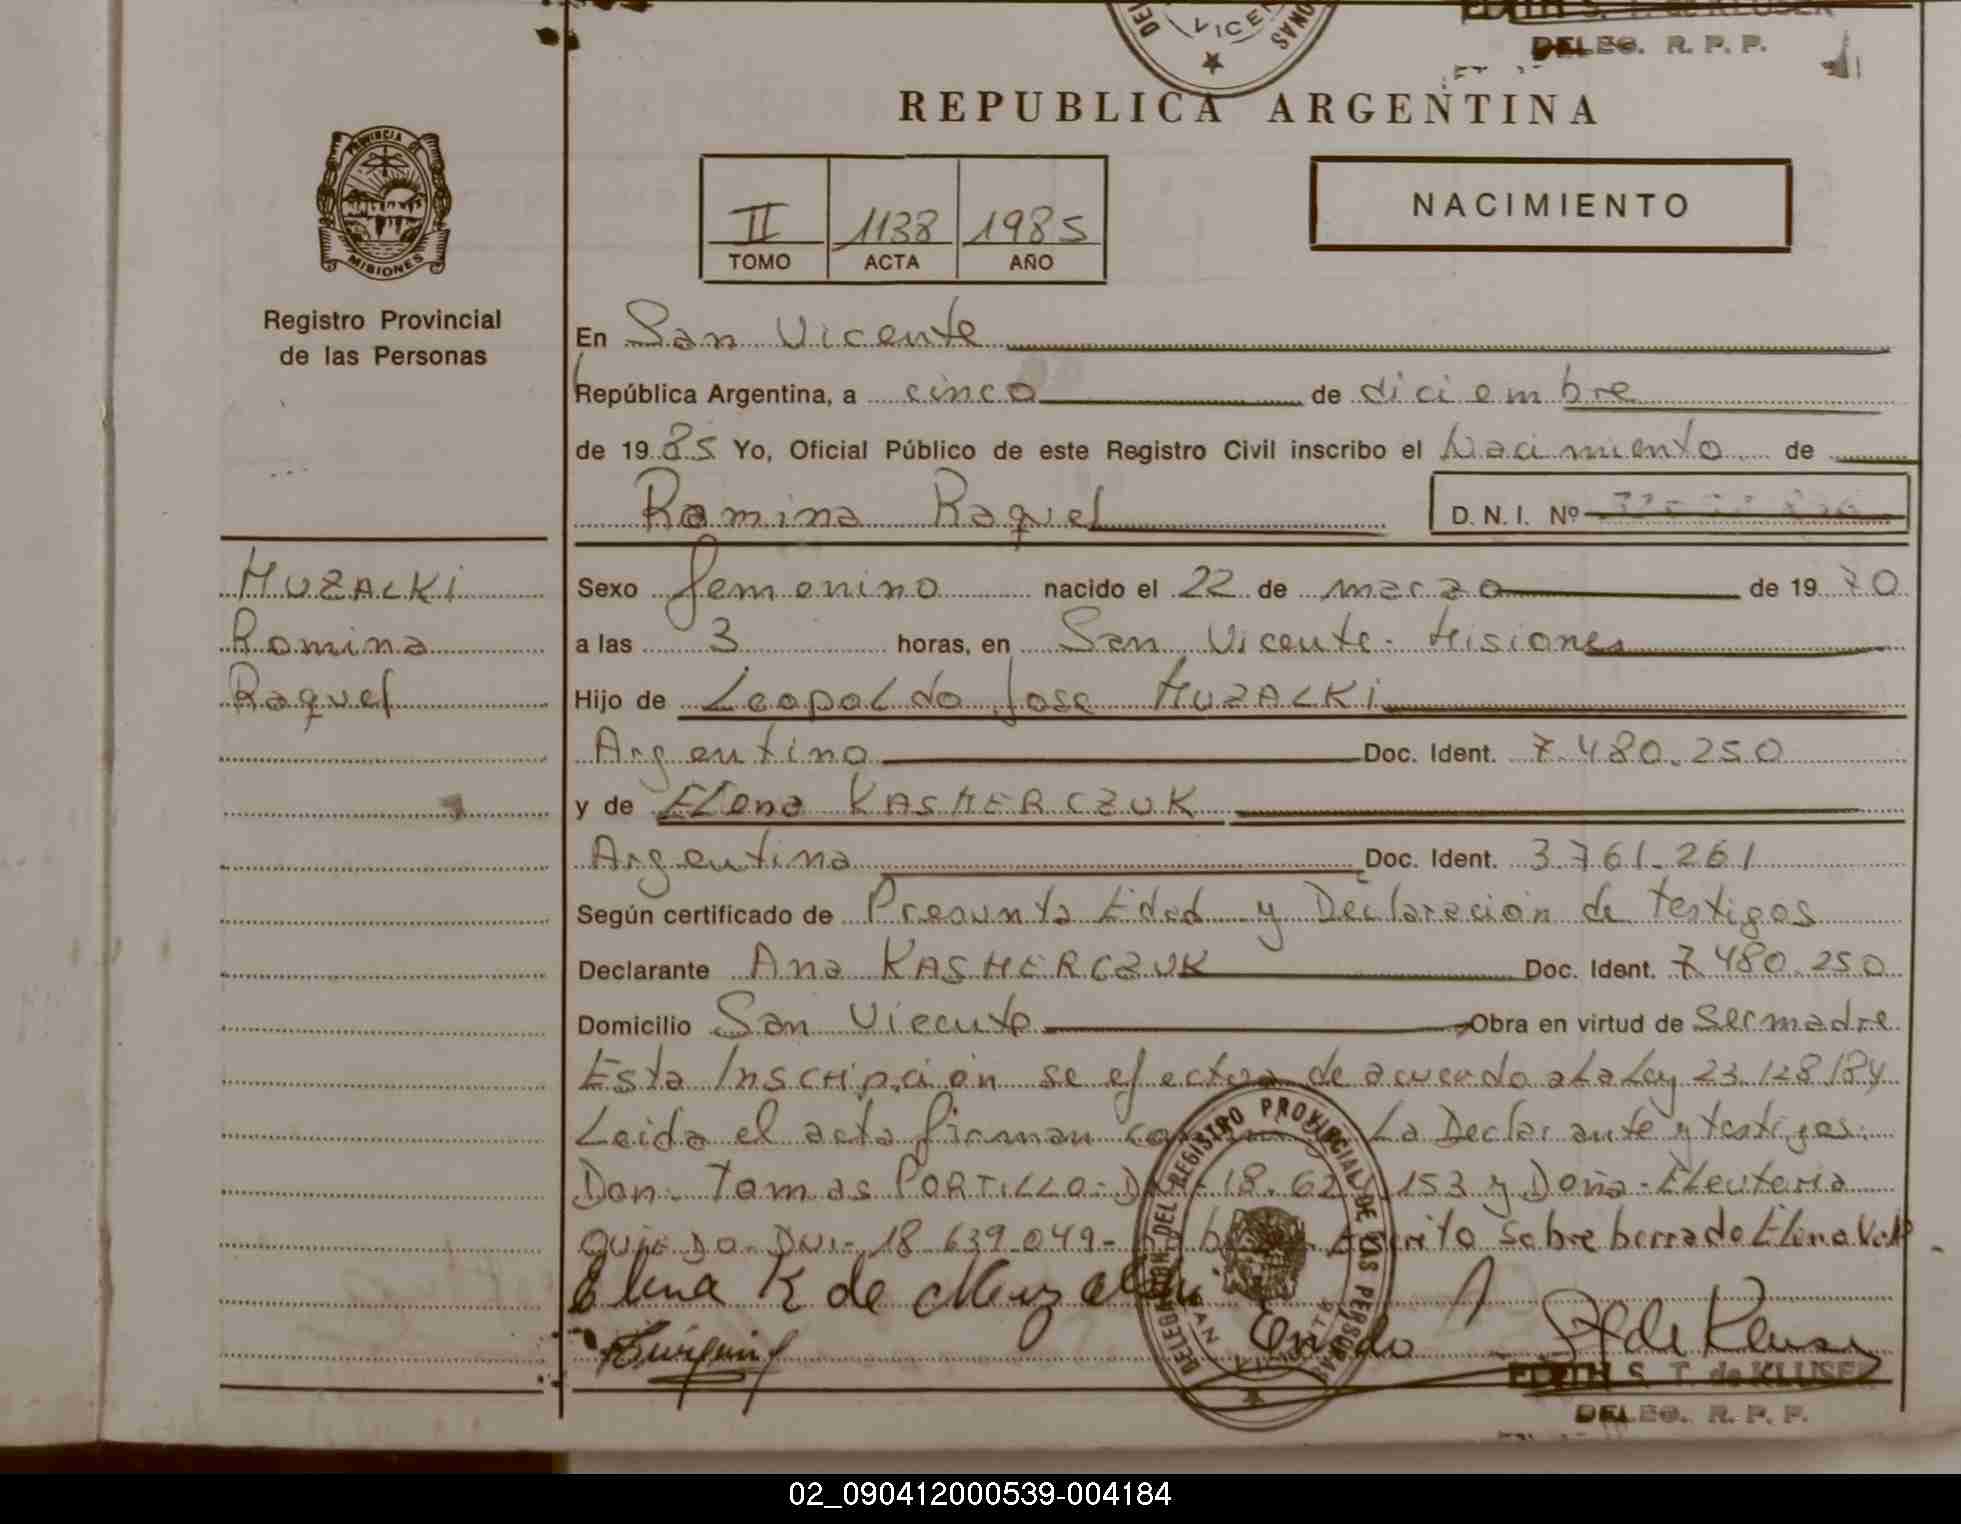 EDITH S. T. de KLUSER
DELEG. R. P. P.
REPUBLICA ARGENTINA
PROVINCIA DE
MISIONES
Registro Provincial
de las Personas
II 1138 1985
TOMO ACTA AÑO
NACIMIENTO
En San Vicente
República Argentina, a cinco de diciembre
de 1985 Yo, Oficial Público de este Registro Civil inscribo el Nacimiento de
Romina Raquel D. N. I. Nº
MUZALKi
Romina
Raquel
Sexo femenino nacido el 22 de marzo de 1970
a las 3 horas, en San Vicente - Misiones
Hijo de Leopoldo Jose MUZALKi
Argentino Doc. Ident. 7.480.250
y de Elena KASMERCZUK
Argentina Doc. Ident. 3.761.261
Según certificado de Presunta Edad y Declaración de testigos
Declarante Ana KASMERCZUK Doc. Ident. 7.480.250
Domicilio San Vicente Obra en virtud de Ser madre
Esta Inscripción se efectua de acuerdo a La Ley 23.128/84
Leida el acta firman La Declarante y testigos:
Don. Tomas PORTILLO- 18.62 153 y Doña - Eleuteria
DNI- 18.639.049- Escrito sobre borrado Elena Vale
Elena K de Muzalki
DELEGACION DEL REGISTRO PROVINCIAL DE LAS PERSONAS
SAN VICENTE
EDITH S. T. de KLUSER
DELEG. R. P. P.
02_090412000539-004184